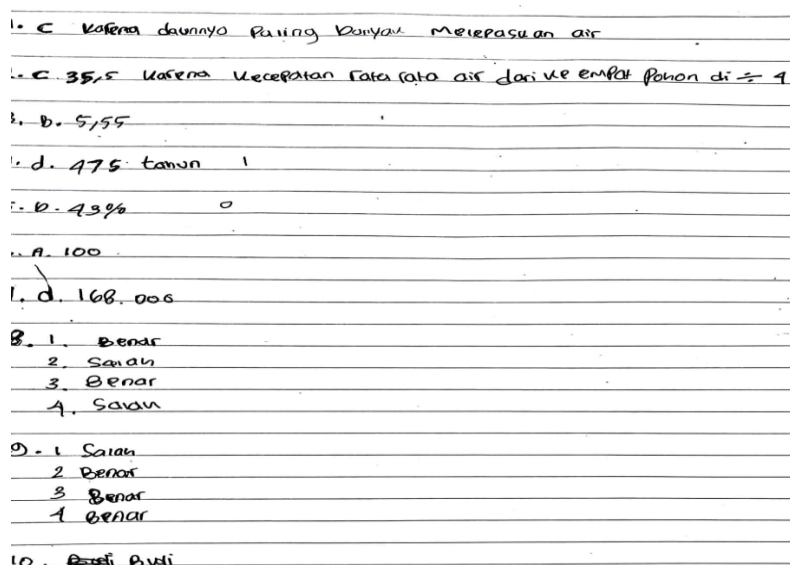 1. C karena daunnyo Paling banyak Melepaskan air
. C 35,5 karena kecepatan rata rata air dari ke empat Pohon di ÷ 4
3. B. 5,55
. d. 475 tahun 1
. D. 43% 0
. A. 100
. d. 168.000
8. 1. Benar
2. Salah
3. Benar
4. Salah
9. 1 Salah
2 Benar
3 Benar
4 Benar
10. Budi